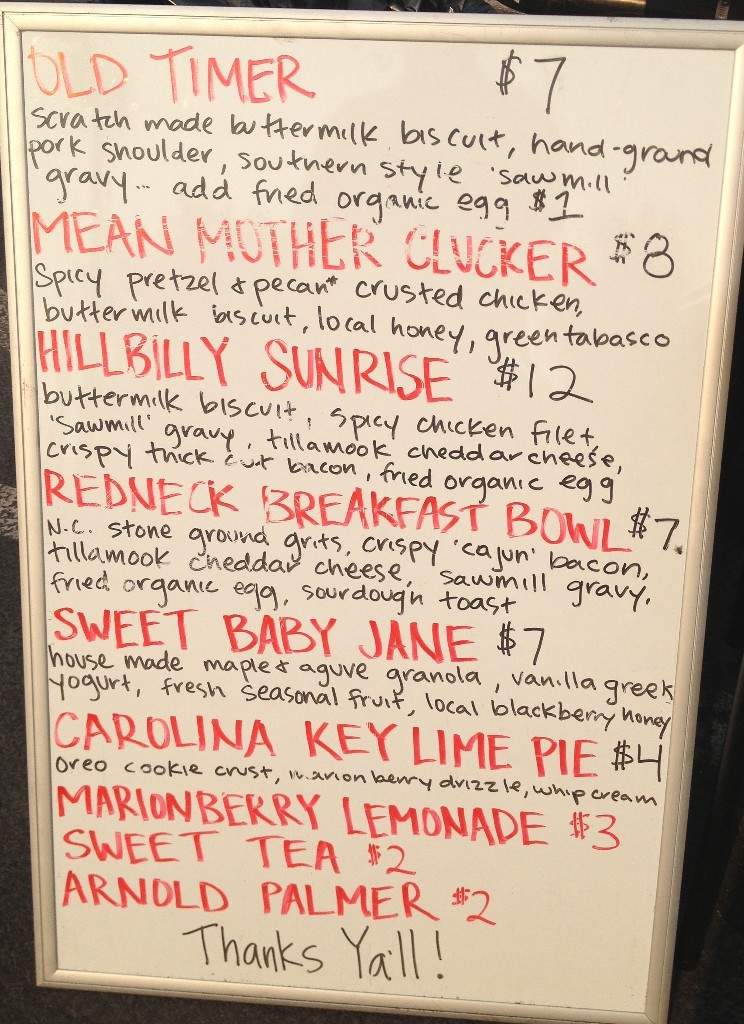 OLD TIMER $7
scratch made buttermilk biscuit, hand-ground
pork shoulder, southern style 'sawmill'
gravy... add fried organic egg $1
MEAN MOTHER CLUCKER $8
Spicy pretzel & pecan* crusted chicken,
buttermilk biscuit, local honey, green tabasco
HILLBILLY SUNRISE $12
buttermilk biscuit, spicy chicken filet,
'Sawmill' gravy, tillamook cheddar cheese,
crispy thick cut bacon, fried organic egg
REDNECK BREAKFAST BOWL $7
N.C. stone ground grits, crispy 'cajun' bacon,
tillamook cheddar cheese, sawmill gravy,
fried organic egg, sourdough toast
SWEET BABY JANE $7
house made maple & aguve granola, vanilla greek
yogurt, fresh seasonal fruit, local blackberry honey
CAROLINA KEY LIME PIE $4
oreo cookie crust, marionberry drizzle, whip cream
MARIONBERRY LEMONADE $3
SWEET TEA $2
ARNOLD PALMER $2
Thanks Ya'll!